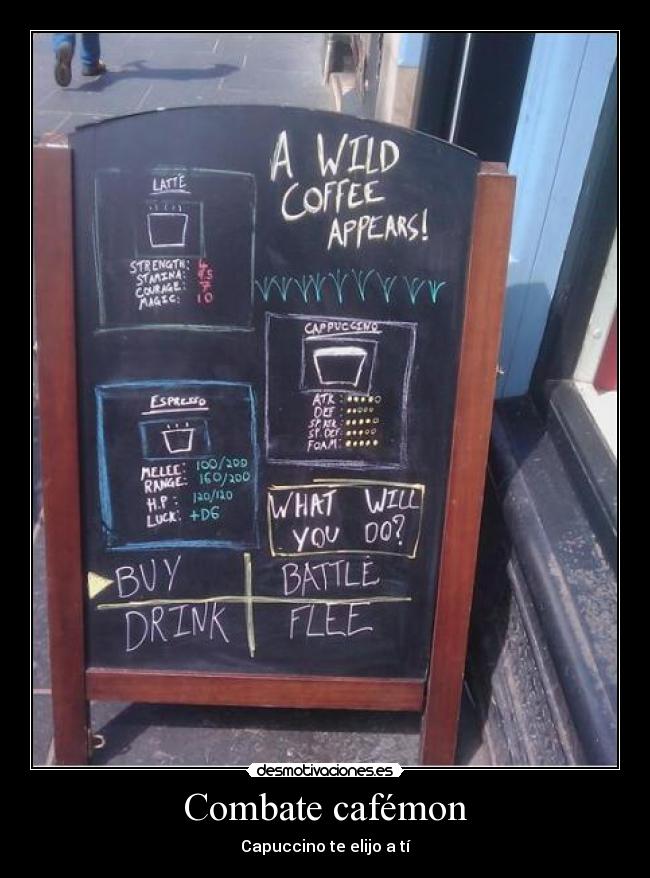 A WILD
COFFEE
APPEARS!
LATTÉ
STRENGTH: 6
STAMINA: 9.5
COURAGE: 7
MAGIC: 10
CAPPUCCINO
ATK:
DEF:
SP.ATK:
SP. DEF:
FOAM:
ESPRESSO
MELEE: 100/200
RANGE: 160/200
H.P: 120/120
LUCK: +D6
WHAT WILL
YOU DO?
BUY BATTLE
DRINK FLEE
desmotivaciones.es
Combate cafémon
Capuccino te elijo a tí